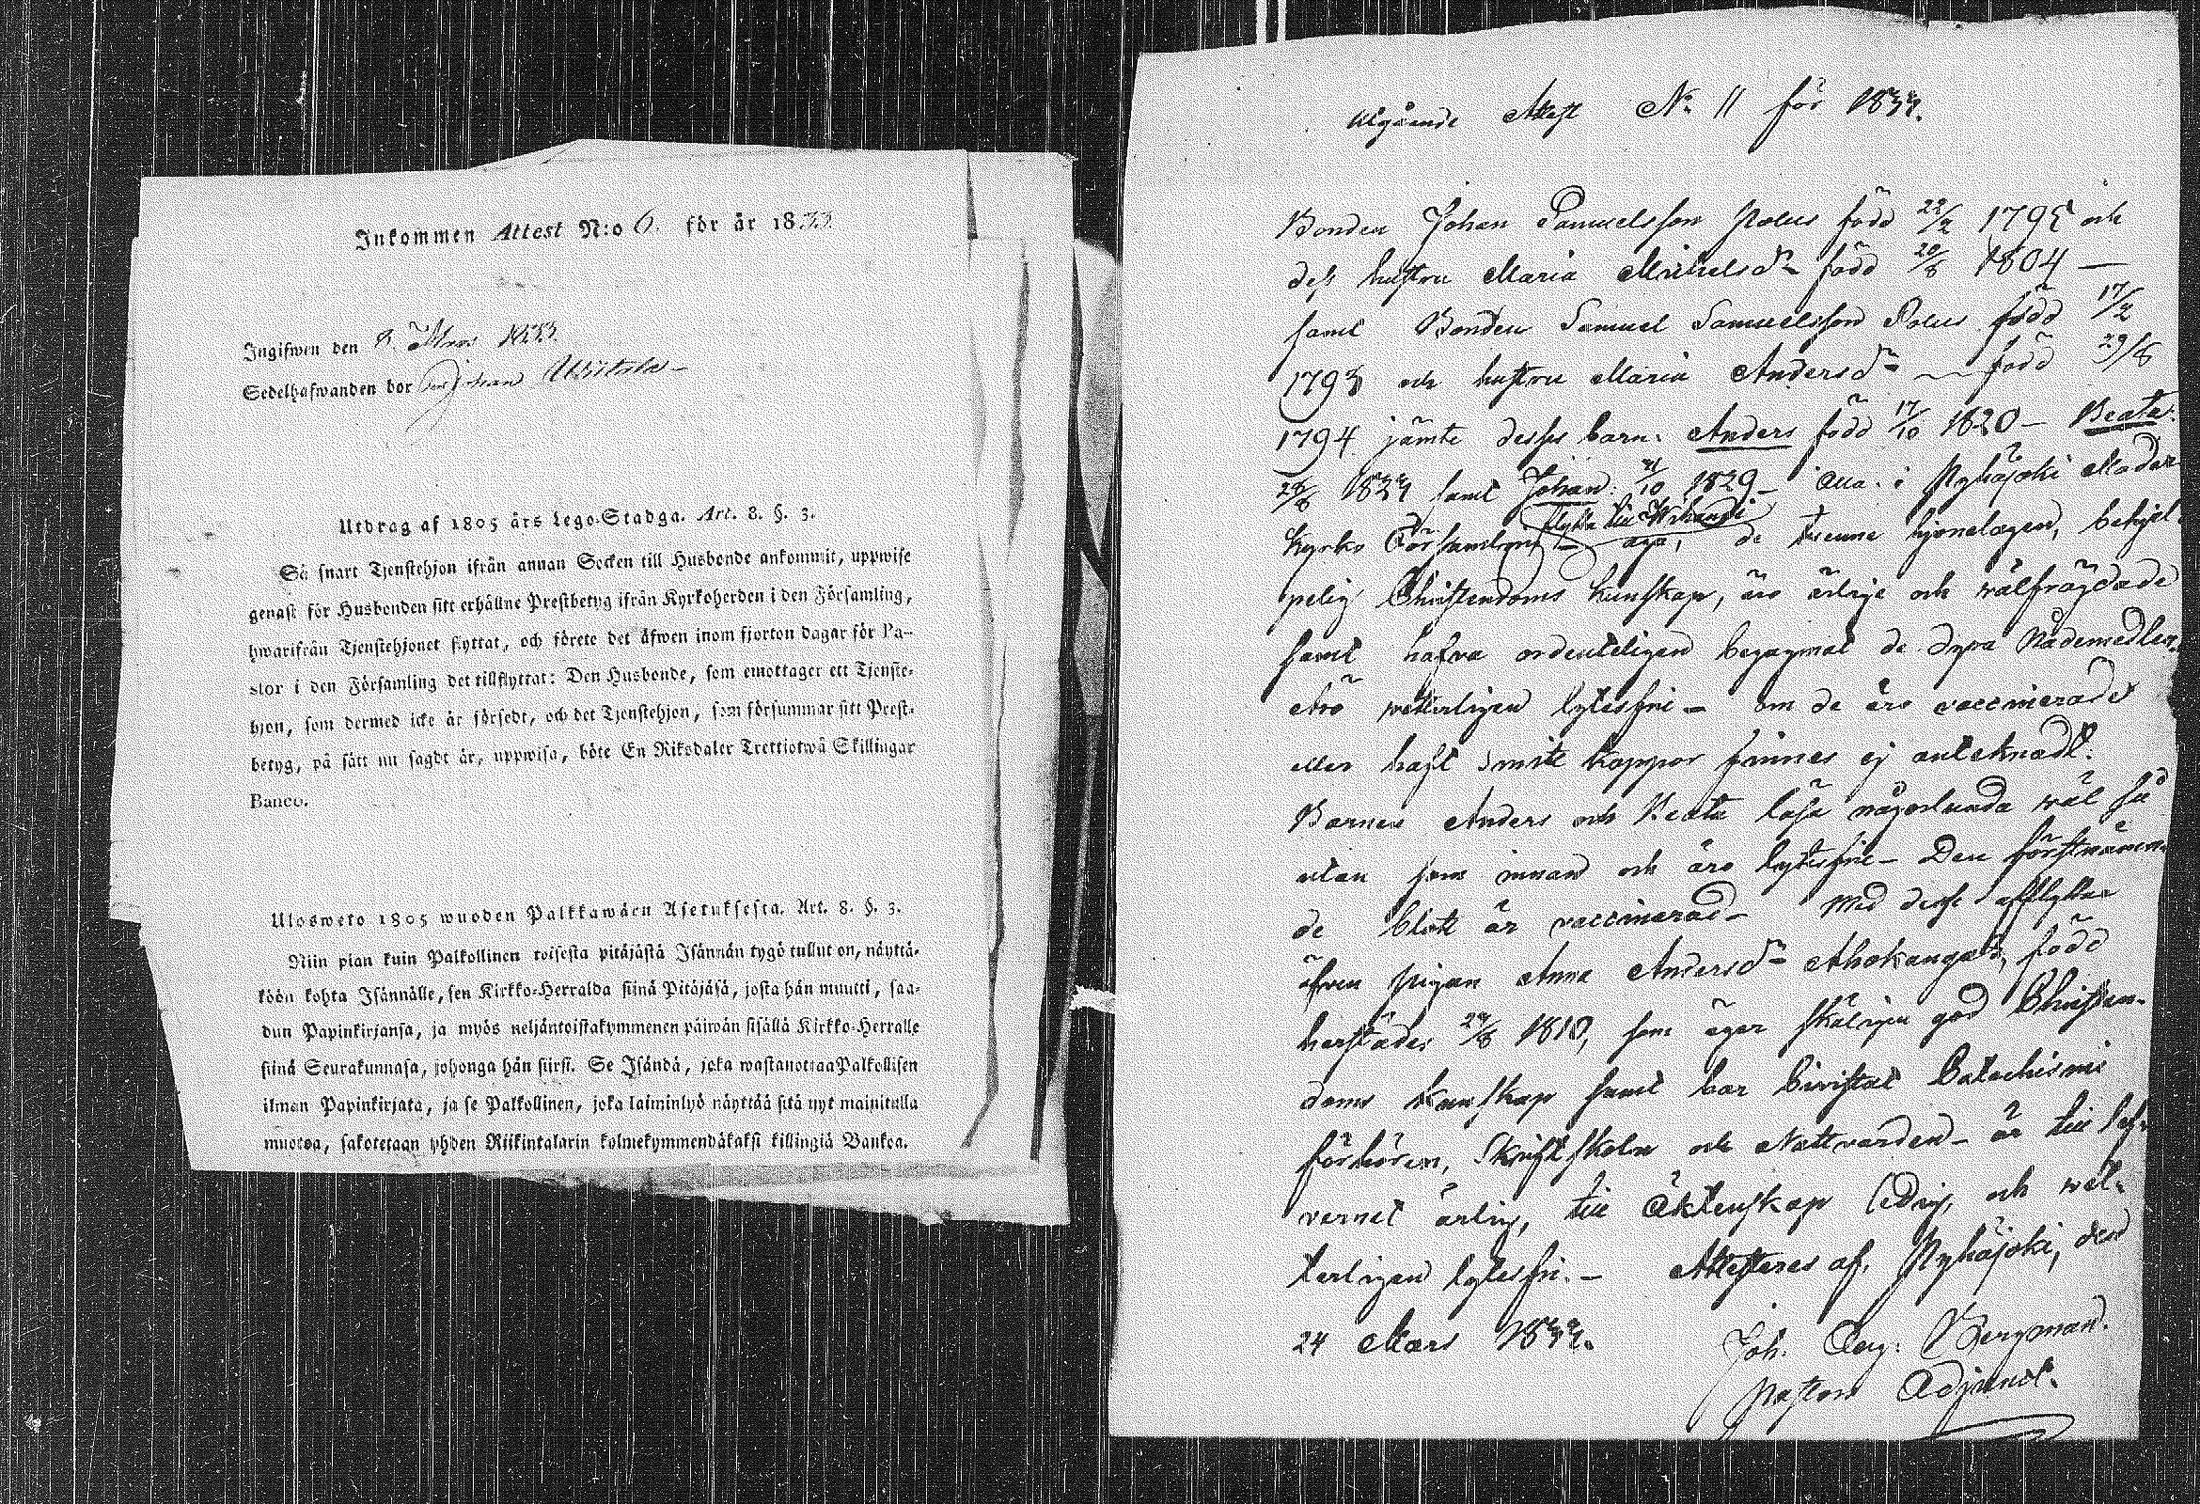 Inkommen Attest N:o 6. för år 1833
Ingifwen den 8. Mars 1833.
Sedelhafwanden bor Johan
Utdrag af 1805 års Lego-Stadga. Art. 8. §. 3.
Så snart Tjenstehjon ifrån annan Socken till Husbonde ankommit, uppwise
genast för Husbonden sitt erhållne Prestbetyg ifrån Kyrkoherden i den Församling,
hwarifrån Tjenstehjonet flyttat, och förete det äfwen inom fjorton dagar för Pa-
stor i den Församling det tillflyttat: Den Husbonde, som emottager ett Tjenste-
hjon, som dermed icke är försedt, och det Tjenstehjon, som försummar sitt Prest-
betyg, på sätt nu sagdt är, uppwisa, böte En Riksdaler Trettiotwå Skillingar
Banco.
Ulosweto 1805 wuoden Palkkawäen Asetuksesta. Art. 8. §. 3.
Niin pian kuin Palkollinen toisesta pitäjästä Isännän tygö tullut on, näyttä-
köön kohta Isännälle, sen Kirkko-Herralda siinä Pitäjäsä, josta hän muutti, saa-
dun Papinkirjansa, ja myös neljäntoistakymmenen päiwän sisällä Kirkko-Herralle
siinä Seurakunnasa, johonga hän siirsi. Se Isändä, joka wastanottaa Palkollisen
ilman Papinkirjata, ja se Palkollinen, joka laiminlyö näyttää sitä nyt mainitulla
muotoa, sakotetaan yhden Riikintalarin kolmekymmendäkaksi killingiä Bankoa.
Utgående Attest No 11 för 1833.
Bonden Johan Samuelsson Polus född 22/2 1795 och
dess hustru Maria Michelsdr född 20/8 1804 —
samt Bonden Samuel Samuelsson Polus född 17/2
1793 och hustru Maria Andersdr — född 29/8
1794 jämte desses barn: Anders född 17/10 1820 — Beata
28/8 1823 samt Johan: 21/10 1829 — alla i Pyhäjoki Moder
Kyrko Församling flytta till äga, de trenne hjonelagen, behjel-
pelig Christendoms kunskap, äro ärlige och wälfrägdade
samt hafva ordenteligen begagnat de dyra Nådemedlen.
Äro wetterligen lytesfrie — om de äro vaccinerade
eller haft Smitt koppor finnes ej anteknadt.
Barnen Anders och Beata läsa någorlunda wäl så
utan som innan och äro lytesfrie — Den förstnämn-
de blott är vaccinerad — Med desse afflyttar
äfven pigan Anna Andersdr Ahokangas, född
härstädes 24/8 1810, som äger skäligen god Christen-
doms kunskap samt har bivistat Catechismi
förhören, Skriftskolor och Nattvarden — är till lef-
vernet ärlig, till Äktenskap ledig, och wet-
terligen lytesfri. — Attesteres af, Pyhäjoki, den
24 Mars 1833.
Joh. Aug: Bergman.
Pastors Adjunct.